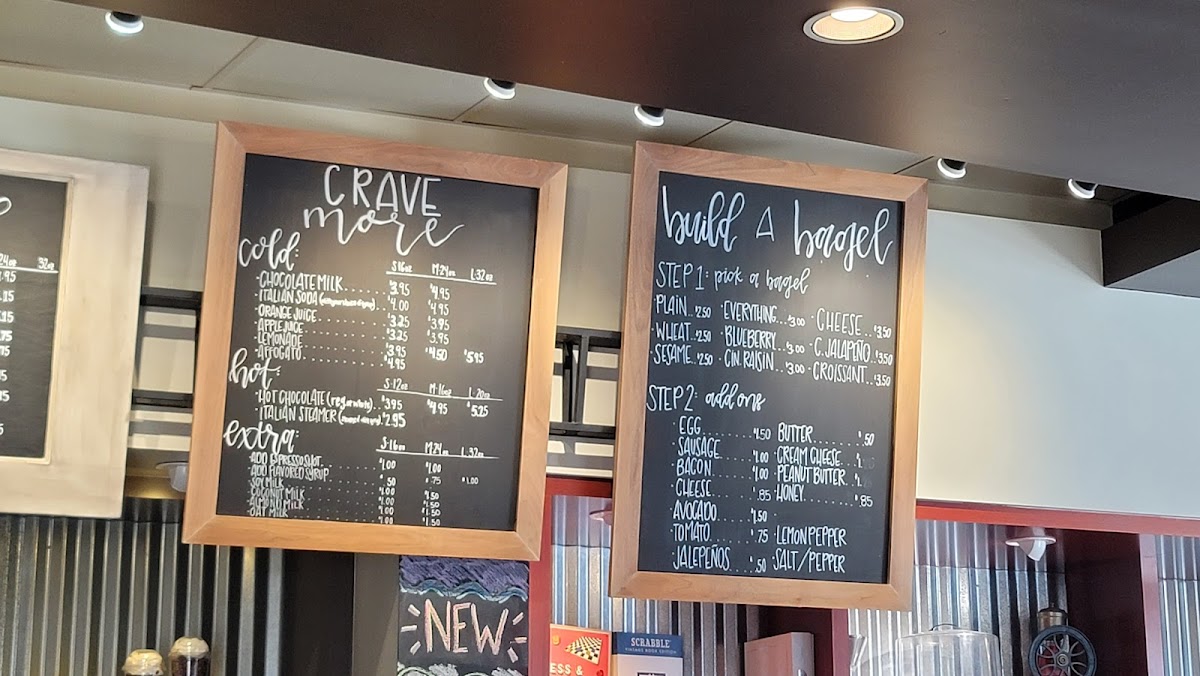 24oz 32oz
CRAVE
more
cold:
S·16oz M·24oz L·32oz
·CHOCOLATE MILK........ $3.95 $4.95
·ITALIAN SODA $4.00 $4.95
·ORANGE JUICE........ $3.25 $3.95
·APPLE JUICE........ $3.25 $3.95
·LEMONADE........ $3.95 $4.50 $5.95
·AFFOGATO........ $4.95
hot:
S·12oz M·16oz L·20oz
·HOT CHOCOLATE (reg or white)... $3.95 $4.95 $5.25
·ITALIAN STEAMER $2.95
extra:
S·16oz M·24oz L·32oz
·ADD ESPRESSO SHOT $1.00 $1.00
·ADD FLAVORED SYRUP .50 $.75 $1.00
·SOY MILK
·COCONUT MILK $1.00 $1.50
·ALMOND MILK $1.00 $1.50
·OAT MILK $1.00 $1.50
build A bagel
STEP 1: pick a bagel
·PLAIN..$2.50 ·EVERYTHING...$3.00 ·CHEESE..$3.50
·WHEAT..$2.50 ·BLUEBERRY..$3.00 ·C.JALAPEÑO..$3.50
·SESAME..$2.50 ·CIN.RAISIN..$3.00 ·CROISSANT..$3.50
STEP 2: add ons
·EGG........$1.50 ·BUTTER........$.50
·SAUSAGE........$1.00 ·CREAM CHEESE..$1.
·BACON........$1.00 ·PEANUT BUTTER..$1.
·CHEESE........$.85 ·HONEY........$.85
·AVOCADO.....$1.50
·TOMATO.....$.75 ·LEMON PEPPER
·JALEPEÑOS....$.50 ·SALT/PEPPER
NEW
ESS &
SCRABBLE
VINTAGE BOOK EDITION